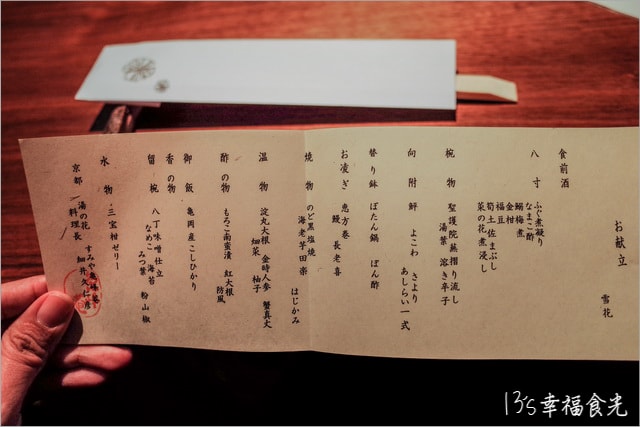 お献立
雪花
食前酒
八寸
ふぐ煮凝り
なまこ酢
鰯梅煮
金柑
福豆
筍土佐まぶし
菜の花煮浸し
椀物
聖護院蕪摺り流し
湯葉 溶き辛子
向附
鮃 よこわ さより
あしらい一式
替り鉢
ぼたん鍋 ぽん酢
お凌ぎ
恵方巻
鰻 長老喜
焼物
のど黒塩焼
海老芋田楽 はじかみ
温物
淀丸大根 金時人参 蟹真丈
畑菜 柚子
酢の物
もろこ南蛮漬 紅大根
防風
御飯
亀岡産こしひかり
香の物
留椀
八丁味噌仕立
なめこ 海苔
みつ葉 粉山椒
水物
三宝柑ゼリー
京都 湯の花 すみや亀峰菴
料理長
13's幸福食光